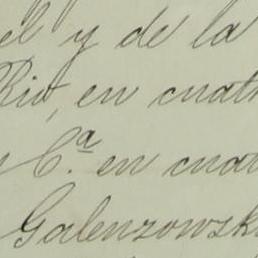 el y de la
Rio, en cuat
y Cª. en cuat
Galenzowsk